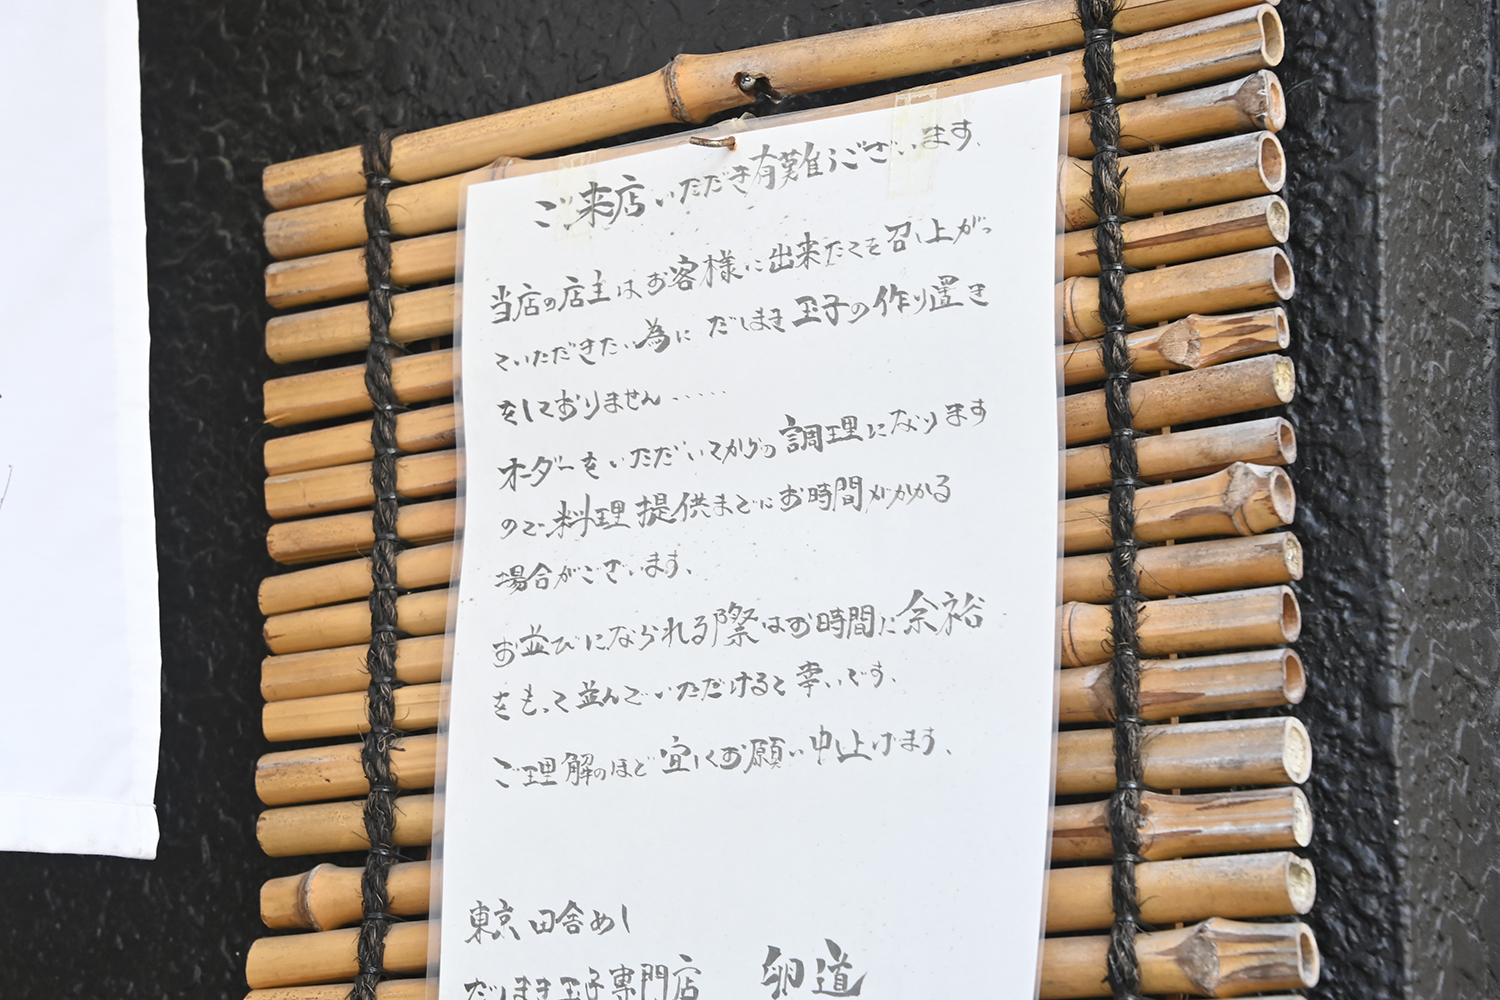 ご来店いただき有難うございます。
当店の店主はお客様に出来たてを召し上がっ
ていただきたい為に だしまき玉子の作り置き
をしておりません‥‥‥
オーダーをいただいてからの調理になります
ので、料理提供までにお時間がかかる
場合がございます。
お並びになられる際はお時間に余裕
をもって並んでいただけると幸いです。
ご理解のほど宜しくお願い申上げます。
東京田舎めし
だしまき玉子専門店 卵道